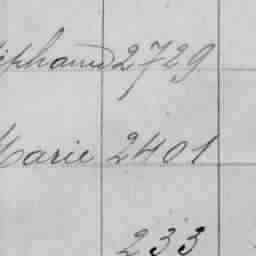 éphanie 2729
Marie 2401
233